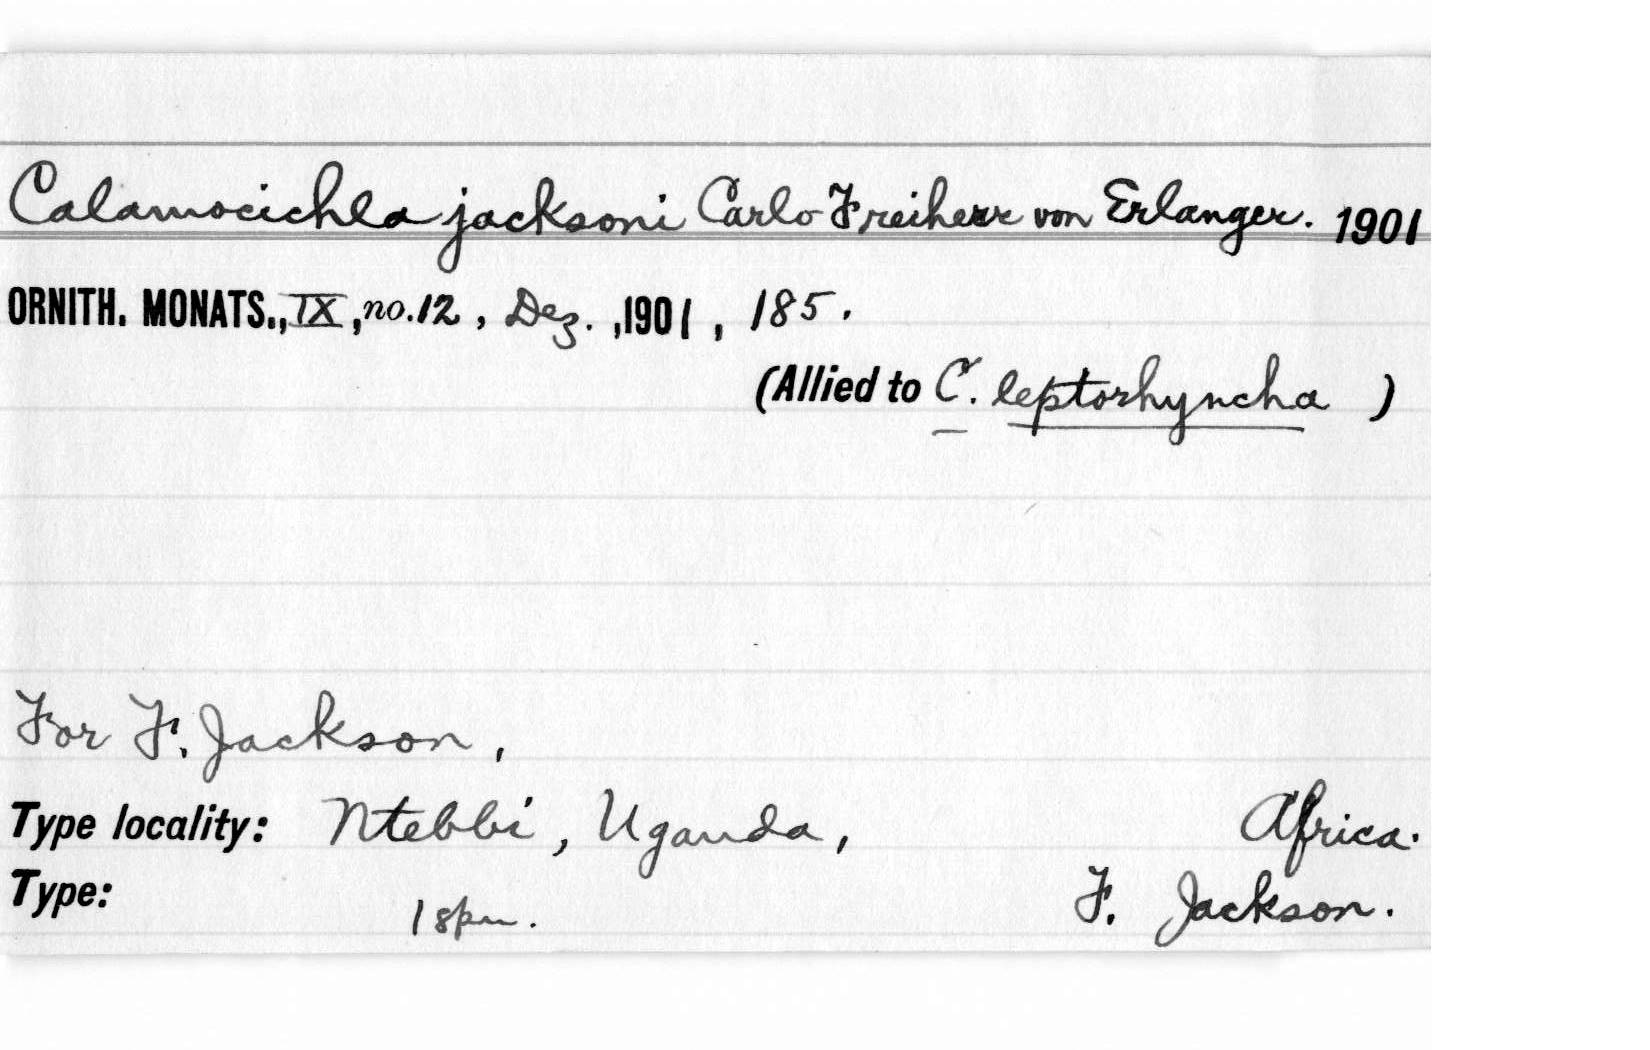 Calamocichla jacksoni Carlo Freiherr von Erlanger. 1901
ORNITH. MONATS., IX, no. 12, Dez., 1901, 185.
(Allied to C. leptorhyncha )
For F. Jackson,
Type locality: Ntebbi, Uganda, Africa.
Type: 1 spm. F. Jackson.